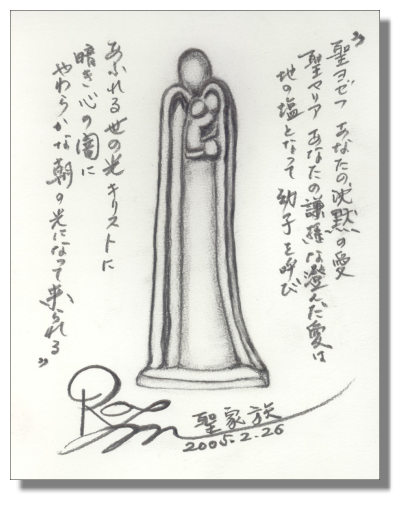 ”聖ヨゼフ あなたの沈黙の愛
聖マリア あなたの謙虚な澄んだ愛は
地の塩となって 幼子を呼び
あふれる世の光 キリストに
暗き心の闇に
やわらかな朝の光になって来られる”
聖家族
2005.2.26